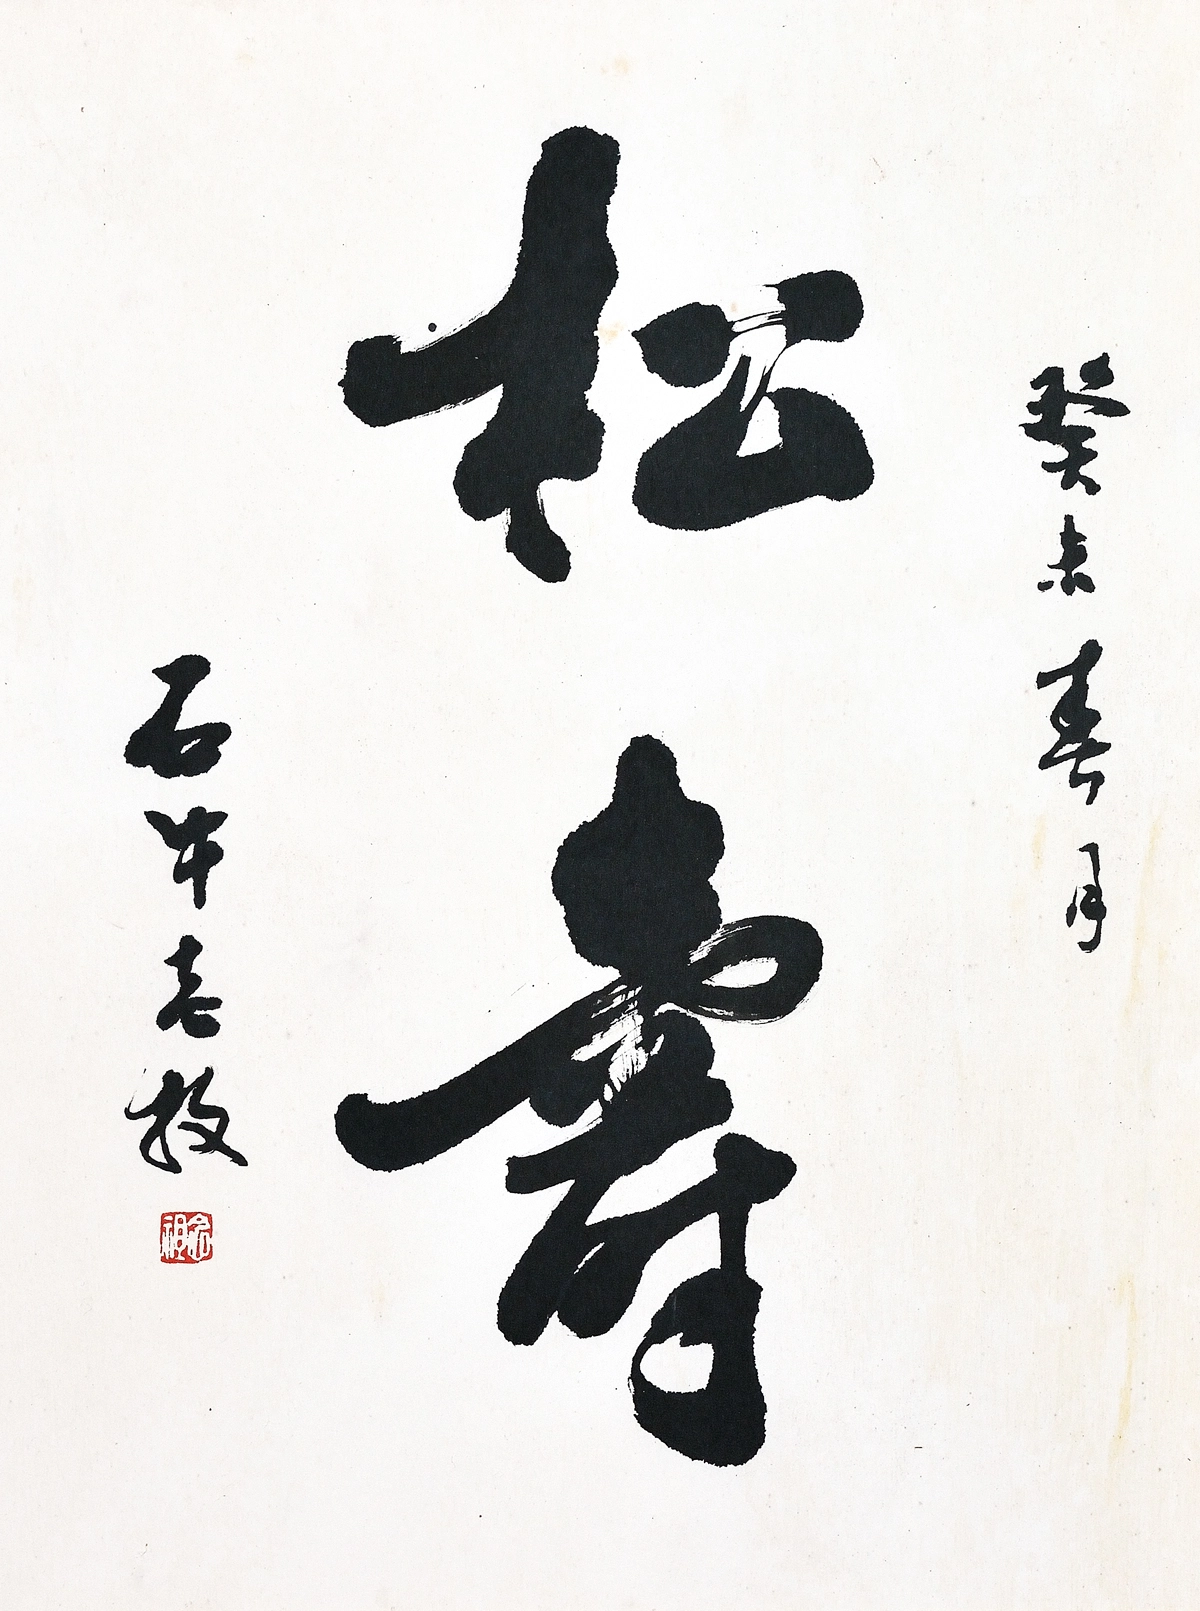 癸未春月
松壽
石年老牧